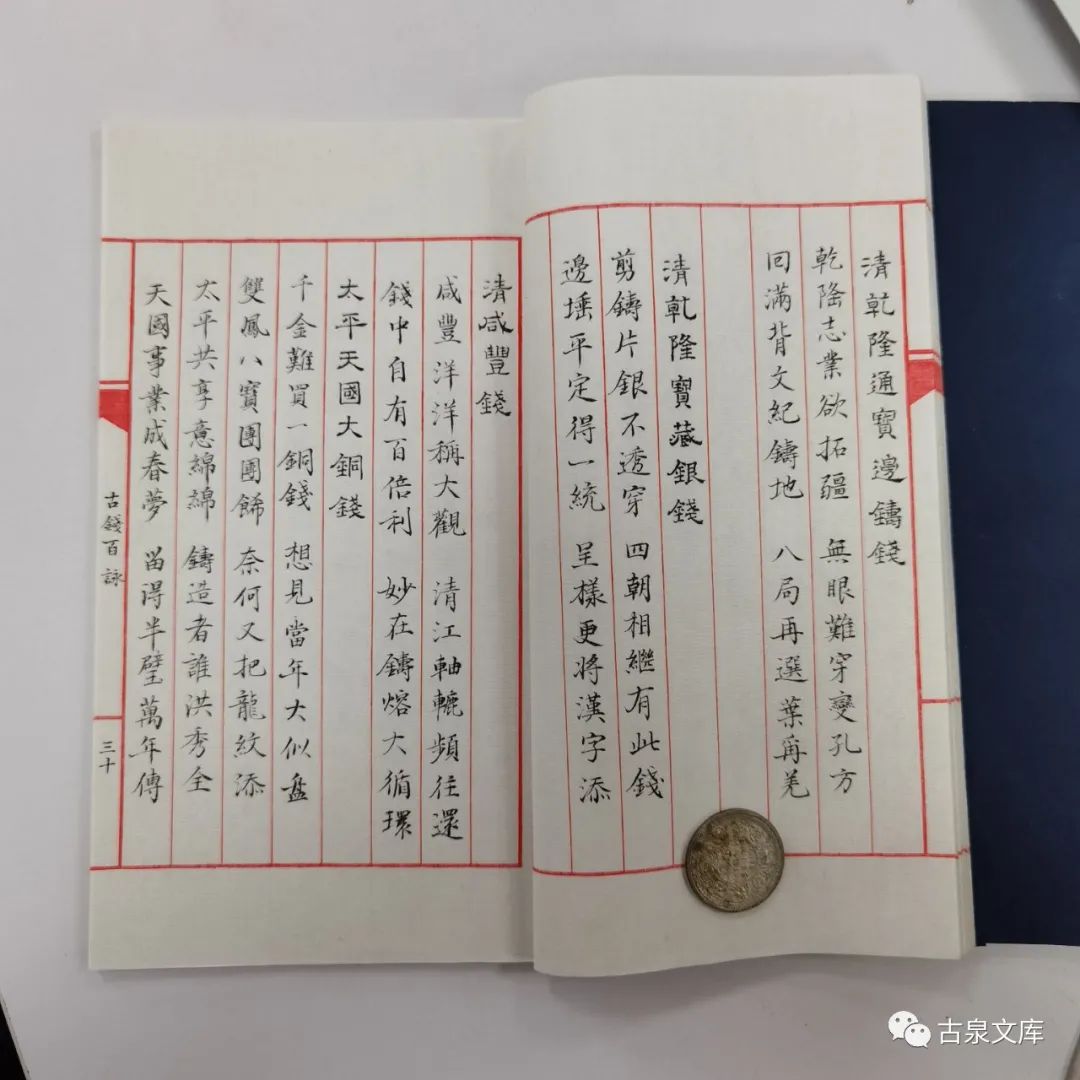 清乾隆通寶邊鑄錢
乾隆志業欲拓疆 無眼難穿變孔方
回滿背文紀鑄地 八局再選葉爾羌
清乾隆寶藏銀錢
剪鑄片銀不透穿 四朝相繼有此錢
邊埵平定得一統 呈樣更將漢字添
清咸豐錢
咸豐洋洋稱大觀 清江軸轆頻往還
錢中自有百倍利 妙在鑄熔大循環
太平天國大銅錢
千金難買一銅錢 想見當年大似盤
雙鳳八寶團團餙 奈何又把龍紋添
太平共享意綿綿 鑄造者誰洪秀全
天國事業成春夢 留得半璧萬年傳
古錢百詠
三十
古泉文库